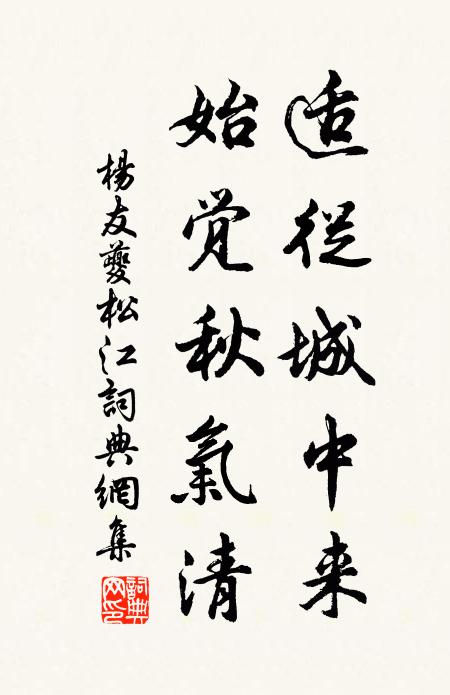 适從城中来
始覺秋氣清
楊友夔松江詞典網集
詞典网印